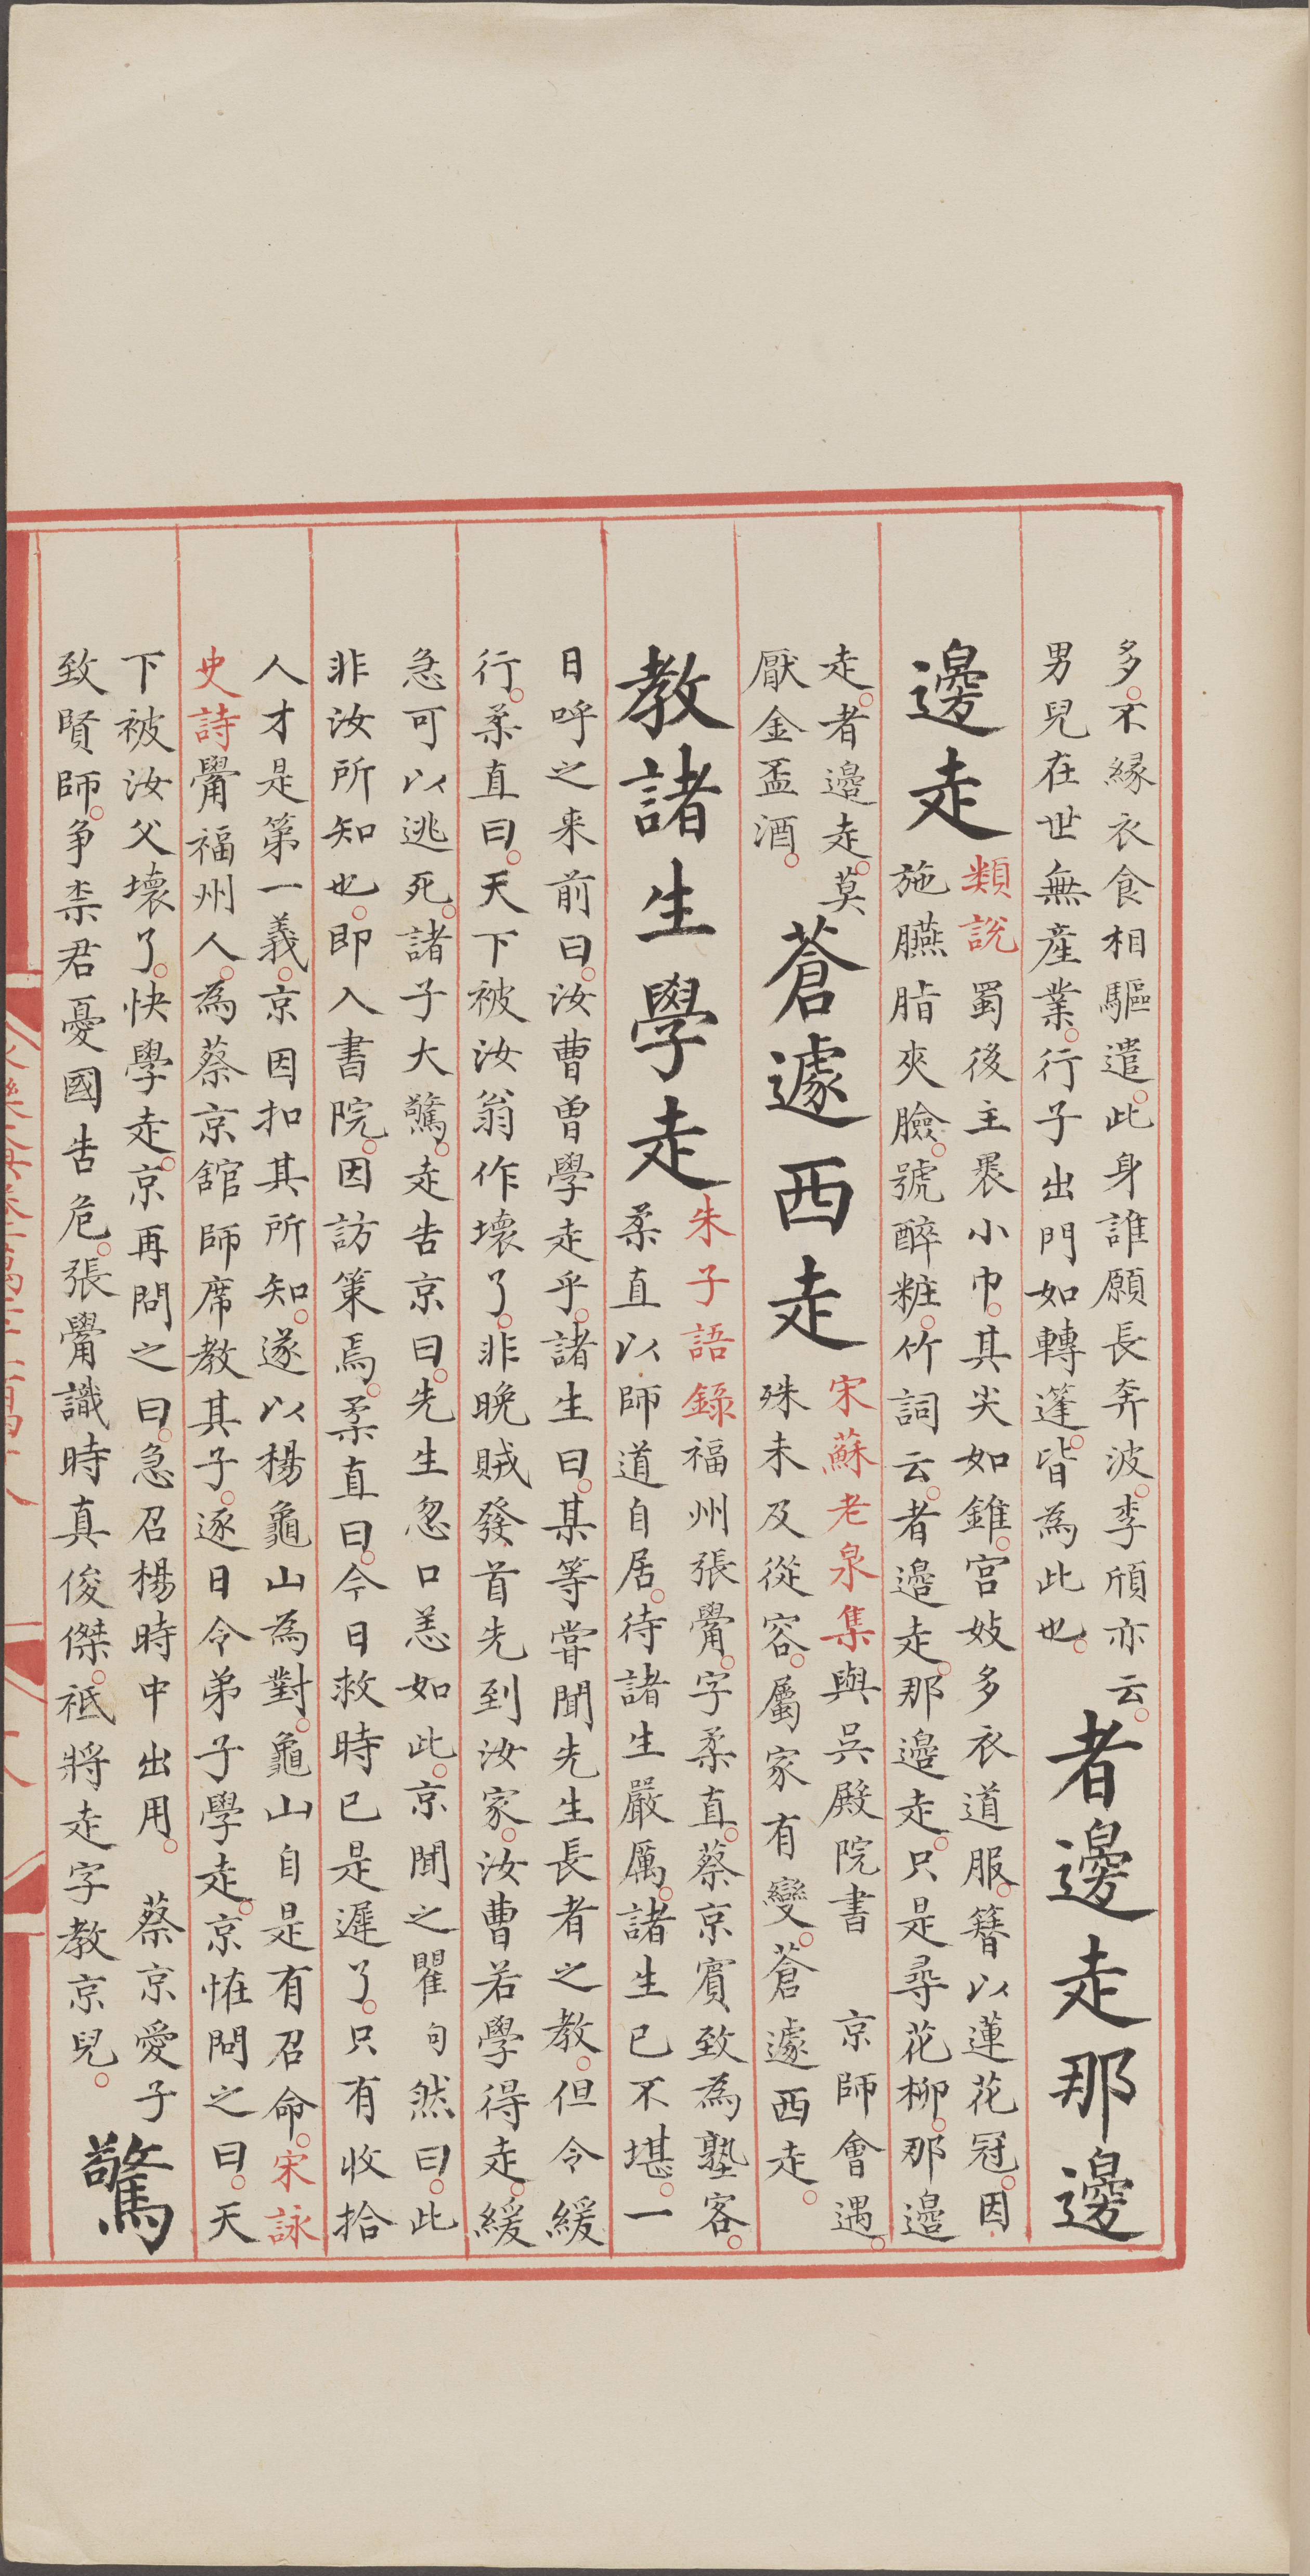 多不縁衣食相驅遣此身誰願長奔波李頎亦云
男兒在世無産業行子出門如轉蓬皆為此也
者邊走那邊
邊走
類説蜀後主裹小巾其尖如錐宫妓多衣道服簪以蓮花冠因
施臙脂夾臉號醉粧竹詞云者邊走那邊走只是尋花柳那邊
走者邊走莫
厭金盃酒
蒼遽西走
宋蘇老泉集與吳殿院書 京師會遇
殊未及從容屬家有變蒼遽西走
教諸生學走
朱子語錄福州張觷字柔直蔡京賓致為塾客
柔直以師道自居待諸生嚴厲諸生已不堪一
日呼之来前曰汝曹曽學走乎諸生曰某等甞聞先生長者之教但令緩
行柔直曰天下被汝翁作壊了非晚賊發首先到汝家汝曹若學得走緩
急可以逃死諸子大驚走告京曰先生忽口恙如此京聞之瞿句然曰此
非汝所知也即入書院因訪策焉柔直曰今日救時已是遲了只有收拾
人才是第一義京因扣其所知遂以楊龜山為對龜山自是有召命宋詠
史詩觷福州人為蔡京舘師席教其子逐日令弟子學走京恠問之曰天
下被汝父壊了快學走京再問之曰急召楊時中出用 蔡京愛子
致賢師争柰君憂國告危張觷識時真俊傑祗將走字教京兒
驚